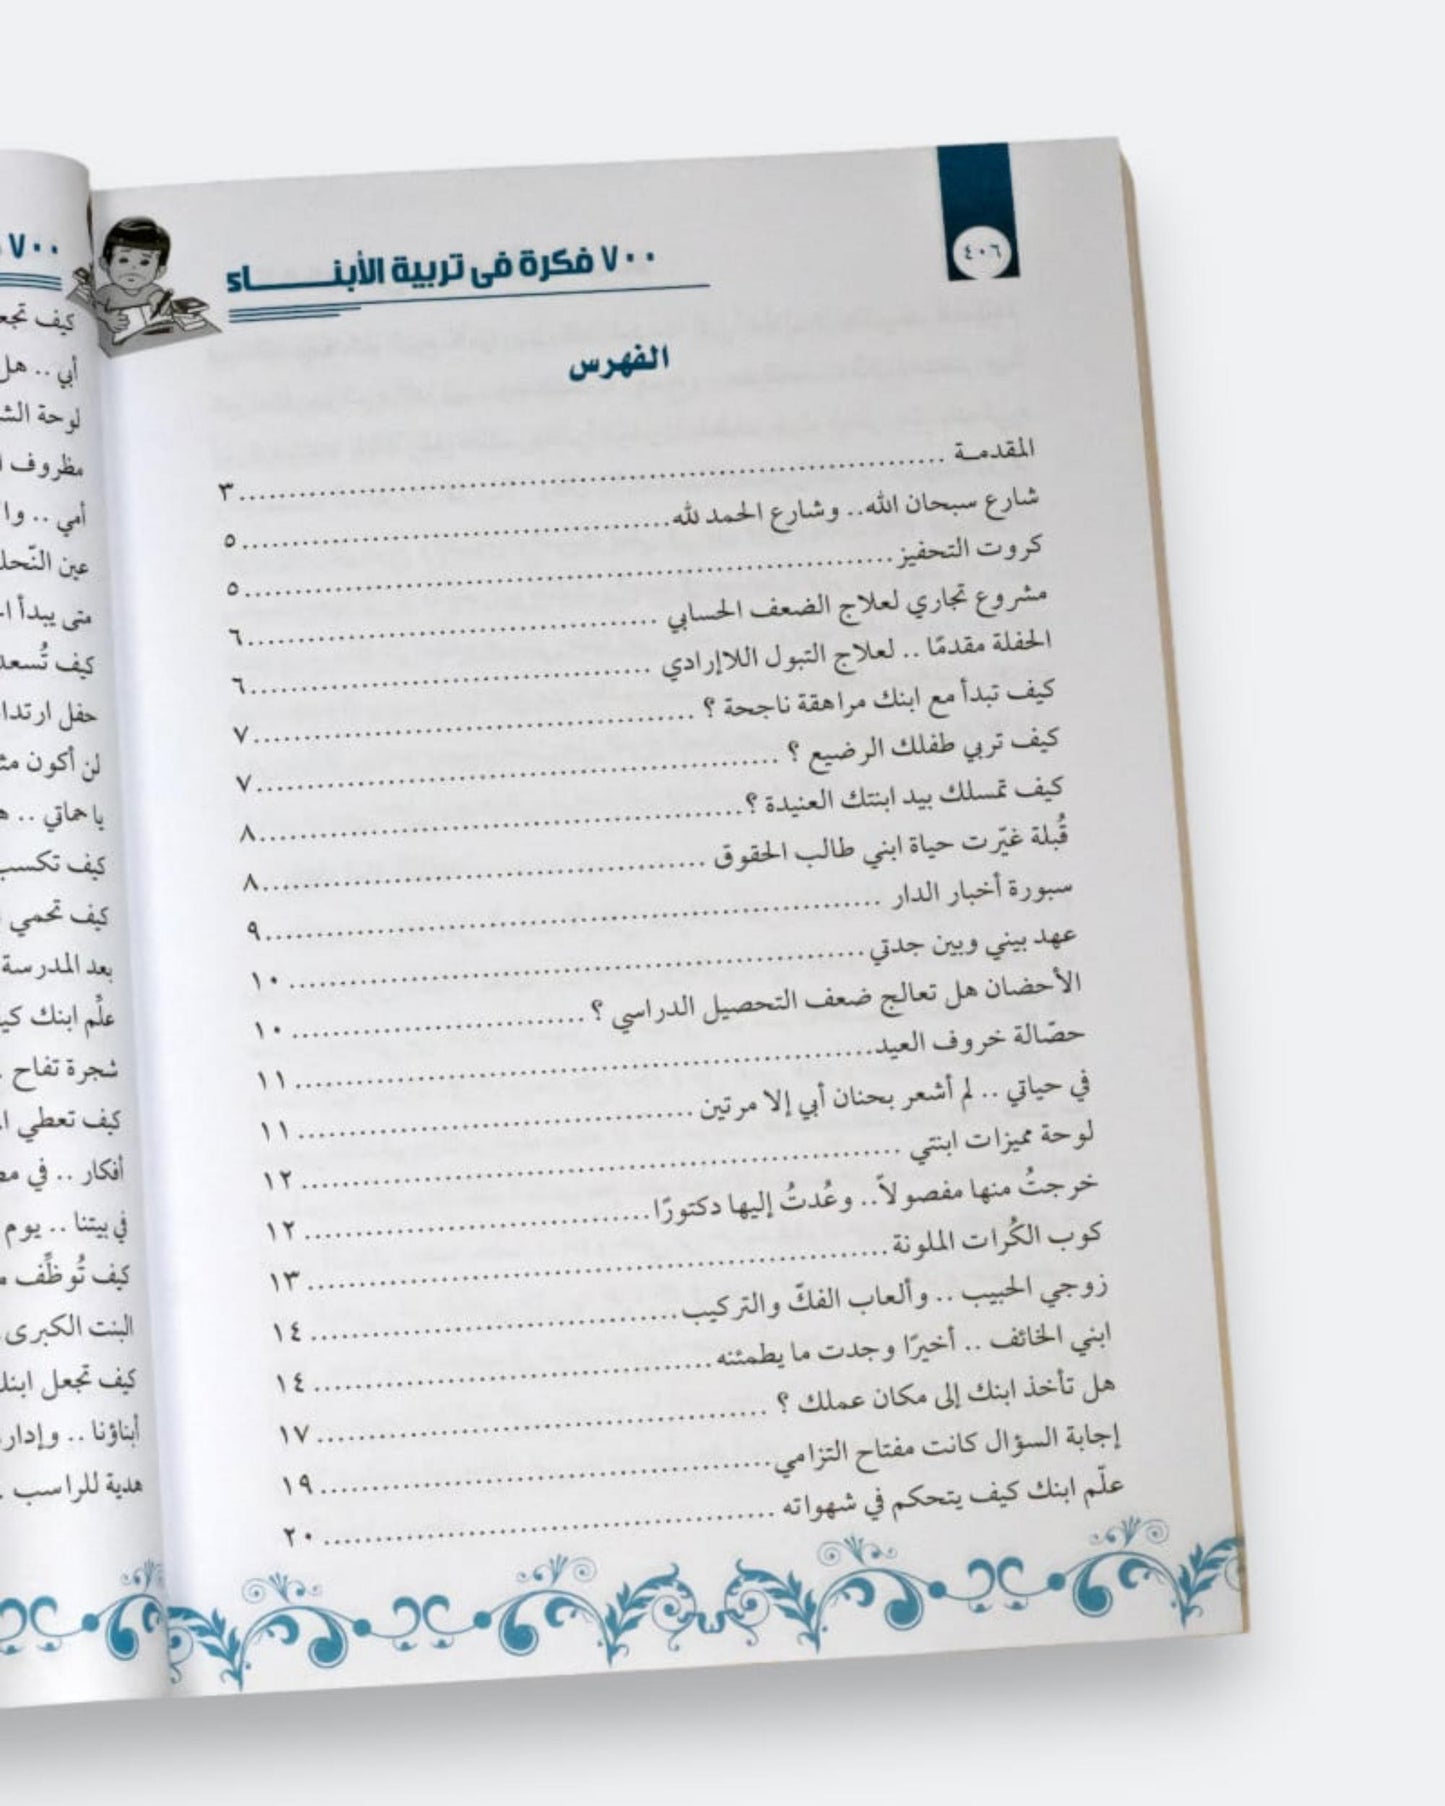 ٤٠٦
٧٠٠ فكرة فى تربية الأبنـــــاء
الفهرس
المقدمـة ................................................ ٣
شارع سبحان الله.. وشارع الحمد لله................................ ٥
كروت التحفيز................................................ ٥
مشروع تجاري لعلاج الضعف الحسابي ................................ ٦
الحفلة مقدمًا .. لعلاج التبول اللاإرادي ................................ ٦
كيف تبدأ مع ابنك مراهقة ناجحة ؟ ................................ ٧
كيف تربي طفلك الرضيع ؟ ................................ ٧
كيف تمسلك بيد ابنتك العنيدة ؟................................ ٨
قُبلة غيّرت حياة ابني طالب الحقوق ................................ ٨
سبورة أخبار الدار ................................ ٩
عهد بيني وبين جدتي................................ ١٠
الأحضان هل تعالج ضعف التحصيل الدراسي ؟ ................................ ١٠
حصّالة خروف العيد................................ ١١
في حياتي .. لم أشعر بحنان أبي إلا مرتين ................................ ١١
لوحة مميزات ابنتي ................................ ١٢
خرجتُ منها مفصولاً.. وعُدتُ إليها دكتورًا................................ ١٢
كوب الكُرات الملونة................................ ١٣
زوجي الحبيب .. وألعاب الفكّ والتركيب................................ ١٤
ابني الخائف .. أخيرًا وجدت ما يطمئنه................................ ١٤
هل تأخذ ابنك إلى مكان عملك ؟ ................................ ١٧
إجابة السؤال كانت مفتاح التزامي................................ ١٩
علّم ابنك كيف يتحكم في شهواته ................................ ٢٠
٧٠٠
كيف
أبي .. هل
لوحة
مظروف
أمي ..
عين
متى يبدأ
كيف تُسعد
حفل
لن أكون
يا حماتي ..
كيف
كيف تحمي
بعد المدرسة
علِّم ابنك
شجرة تفاح
كيف تعطي
أفكار .. في
في بيتنا .. يوم
كيف تُوظِّف
البنت الكبرى
كيف تجعل
أبناؤنا ..
هدية للراسب